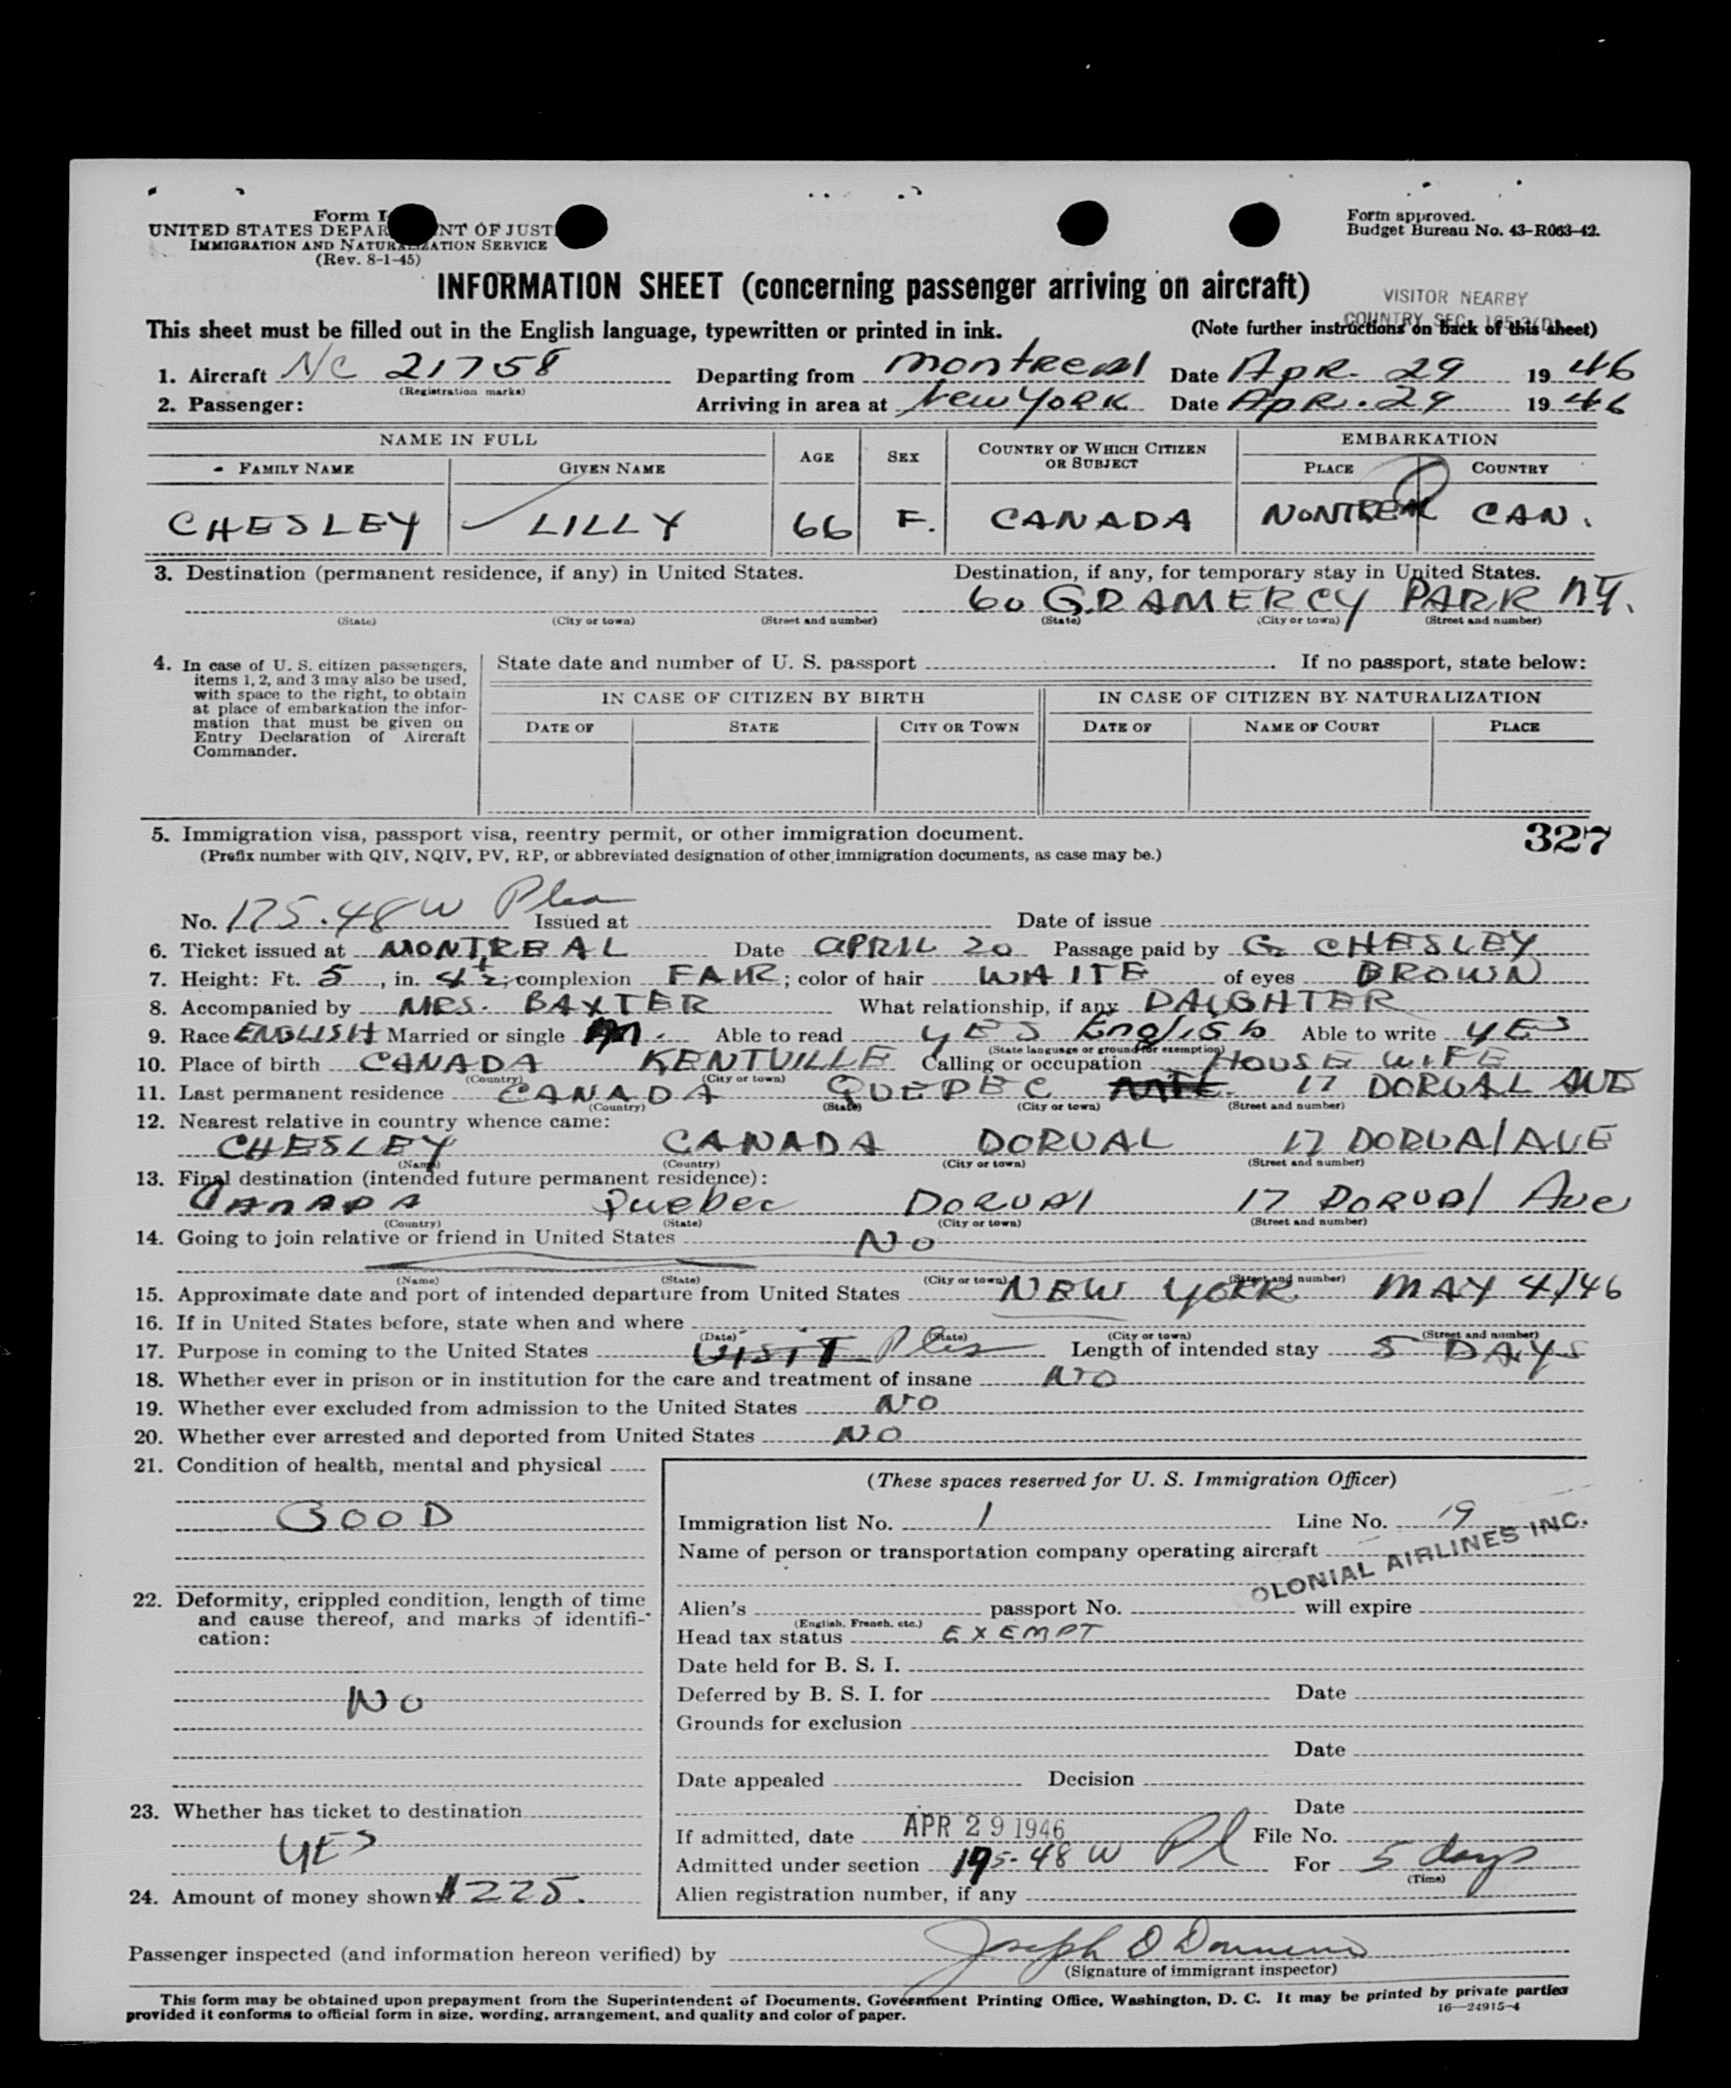 Form I
UNITED STATES DEPAR NT OF JUST
IMMIGRATION AND NATURALIZATION SERVICE
(Rev. 8-1-45)
Form approved.
Budget Bureau No. 43-R063-42.
INFORMATION SHEET (concerning passenger arriving on aircraft)
VISITOR NEARBY
COUNTRY SEC.
This sheet must be filled out in the English language, typewritten or printed in ink. (Note further instructions on back of this sheet)
1. Aircraft NC 21758 Departing from Montreal Date APR. 29 1946
(Registration marks)
2. Passenger: Arriving in area at New YORK Date APR. 29 1946
NAME IN FULL AGE SEX COUNTRY OF WHICH CITIZEN OR SUBJECT EMBARKATION
FAMILY NAME GIVEN NAME PLACE COUNTRY
CHESLEY LILLY 66 F. CANADA MONTREAL CAN.
3. Destination (permanent residence, if any) in United States. Destination, if any, for temporary stay in United States.
60 GRAMERCY PARK NY.
(State) (City or town) (Street and number) (State) (City or town) (Street and number)
4. In case of U. S. citizen passengers, items 1, 2, and 3 may also be used, with space to the right, to obtain at place of embarkation the information that must be given on Entry Declaration of Aircraft Commander.
State date and number of U. S. passport If no passport, state below:
IN CASE OF CITIZEN BY BIRTH IN CASE OF CITIZEN BY NATURALIZATION
DATE OF STATE CITY OR TOWN DATE OF NAME OF COURT PLACE
5. Immigration visa, passport visa, reentry permit, or other immigration document. 327
(Prefix number with QIV, NQIV, PV, RP, or abbreviated designation of other immigration documents, as case may be.)
No. 175.48 W Plea Issued at Date of issue
6. Ticket issued at MONTREAL Date APRIL 20 Passage paid by G CHESLEY
7. Height: Ft. 5, in. 4½; complexion FAIR; color of hair WHITE of eyes BROWN
8. Accompanied by MRS. BAXTER What relationship, if any DAUGHTER
9. Race ENGLISH Married or single M. Able to read YES English Able to write YES
(State language or ground for exemption)
10. Place of birth CANADA KENTVILLE Calling or occupation HOUSE WIFE
(Country) (City or town)
11. Last permanent residence CANADA QUEBEC 17 DORVAL AVE
(Country) (State) (City or town) (Street and number)
12. Nearest relative in country whence came:
CHESLEY CANADA DORVAL 17 DORVAL AVE
(Name) (Country) (City or town) (Street and number)
13. Final destination (intended future permanent residence):
CANADA Quebec DORVAL 17 DORVAL Ave
(Country) (State) (City or town) (Street and number)
14. Going to join relative or friend in United States NO
(Name) (State) (City or town) (Street and number)
15. Approximate date and port of intended departure from United States NEW YORK MAY 4/46
16. If in United States before, state when and where
(Date) (State) (City or town) (Street and number)
17. Purpose in coming to the United States VISIT Ples Length of intended stay 5 DAYS
18. Whether ever in prison or in institution for the care and treatment of insane NO
19. Whether ever excluded from admission to the United States NO
20. Whether ever arrested and deported from United States NO
21. Condition of health, mental and physical
GOOD
22. Deformity, crippled condition, length of time and cause thereof, and marks of identification:
NO
23. Whether has ticket to destination
YES
24. Amount of money shown $225.
(These spaces reserved for U. S. Immigration Officer)
Immigration list No. 1 Line No. 19
Name of person or transportation company operating aircraft
OLONIAL AIRLINES INC.
Alien's passport No. will expire
(English, French, etc.)
Head tax status EXEMPT
Date held for B. S. I.
Deferred by B. S. I. for Date
Grounds for exclusion
Date
Date appealed Decision
Date
If admitted, date APR 29 1946 File No.
Admitted under section 175.48 W Pl For 5 days
(Time)
Alien registration number, if any
Passenger inspected (and information hereon verified) by Joseph O
(Signature of immigrant inspector)
This form may be obtained upon prepayment from the Superintendent of Documents, Government Printing Office, Washington, D. C. It may be printed by private parties
provided it conforms to official form in size, wording, arrangement, and quality and color of paper.
16—24915-4